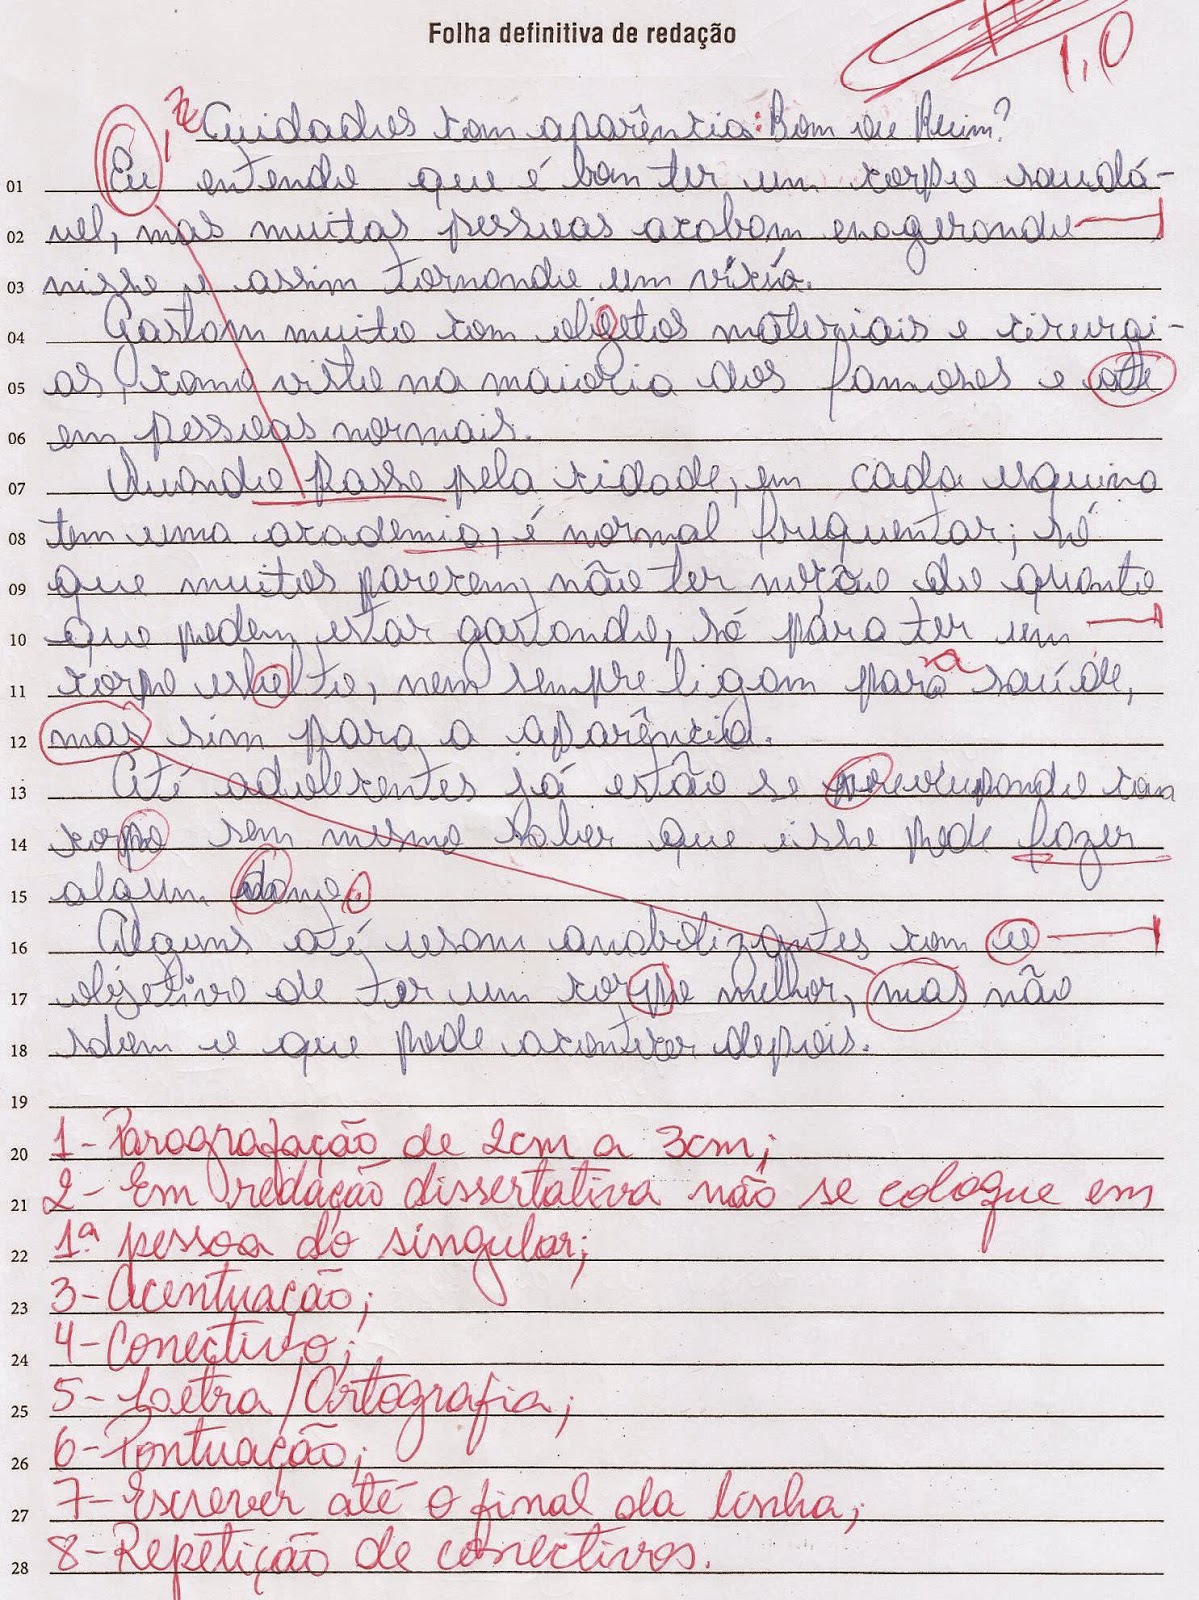 Folha definitiva de redação
1,0
Cuidados com aparência: Bom ou Ruim?
01 Eu entendo que é bom ter um corpo saudá-
02 vel, mas muitas pessoas acabam enagerando
03 nisso e assim tornando um vício.
04 Gastam muito com objetos materiais e cirurgi-
05 as, como visto na maioria dos famosos e até
06 em pessoas normais.
07 Quando Passo pela cidade, em cada esquina
08 tem uma academia, é normal frequentar; só
09 que muitos parecem não ter noção do quanto
10 que podem estar gastando, só para ter um
11 corpo esbelto, nem sempre ligam para a saúde,
12 mas sim para a aparência.
13 Até adolecentes já estão se preocupando com
14 corpo sem mesmo saber que isso pode fazer
15 algum dano.
16 Alguns até usam anabolizantes com o
17 objetivo de ter um corpo melhor, mas não
18 sabem o que pode acontecer depois.
19
20 1- Paragrafação de 2cm a 3cm;
21 2- Em redação dissertativa não se coloque em
22 1ª pessoa do singular;
23 3- Acentuação;
24 4- Conectivo;
25 5- Letra/Ortografia;
26 6- Pontuação;
27 7- Escrever até o final da linha;
28 8- Repetição de conectivos.